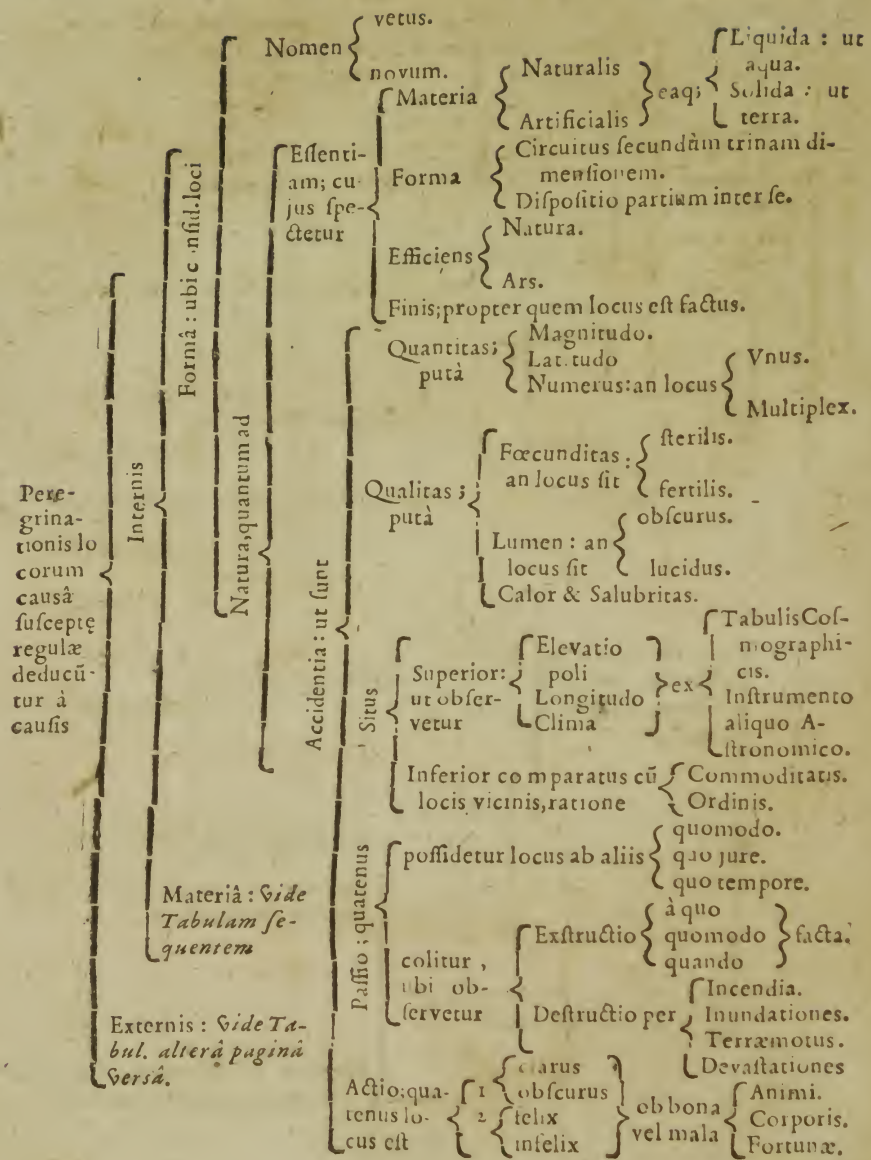 Peregri-
grina-
tionis lo
corum
causâ
susceptę
regulæ
deducū-
tur à
causis
Internis
Formâ : ubi consid. loci
Nomen
vetus.
novum.
Natura, quantum ad
Essenti-
am; cu-
jus spe-
ctetur
Materia
Naturalis
Artificialis
eaq;
Liquida : ut
aqua.
Solida : ut
terra.
Forma
Circuitus secundùm trinam di-
mensionem.
Dispositio partium inter se.
Efficiens
Natura.
Ars.
Finis; propter quem locus est factus.
Accidentia : ut sunt
Quantitas;
putà
Magnitudo.
Latitudo
Numerus: an locus
Vnus.
Multiplex.
Qualitas ;
putà
Fœcunditas :
an locus sit
sterilis.
fertilis.
Lumen : an
locus sit
obscurus.
lucidus.
Calor & Salubritas.
Situs
Superior:
ut obser-
vetur
Elevatio
poli
Longitudo
Clima
ex
Tabulis Cos-
mographi-
cis.
Instrumento
aliquo A-
stronomico.
Inferior comparatus cū
locis vicinis, ratione
Commoditatis.
Ordinis.
Passio ; quatenus
possidetur locus ab aliis
quomodo.
quo jure.
quo tempore.
colitur ,
ubi ob-
servetur
Exstructio
à quo
quomodo
quando
facta.
Destructio per
Incendia.
Inundationes.
Terræmotus.
Devastationes
Actio; qua-
tenus lo-
cus est
1
clarus
obscurus
2
felix
infelix
ob bona
vel mala
Animi.
Corporis.
Fortunæ.
Materiâ : Vide
Tabulam se-
quentem
Externis : Vide Ta-
bul. alterâ paginâ
versâ.